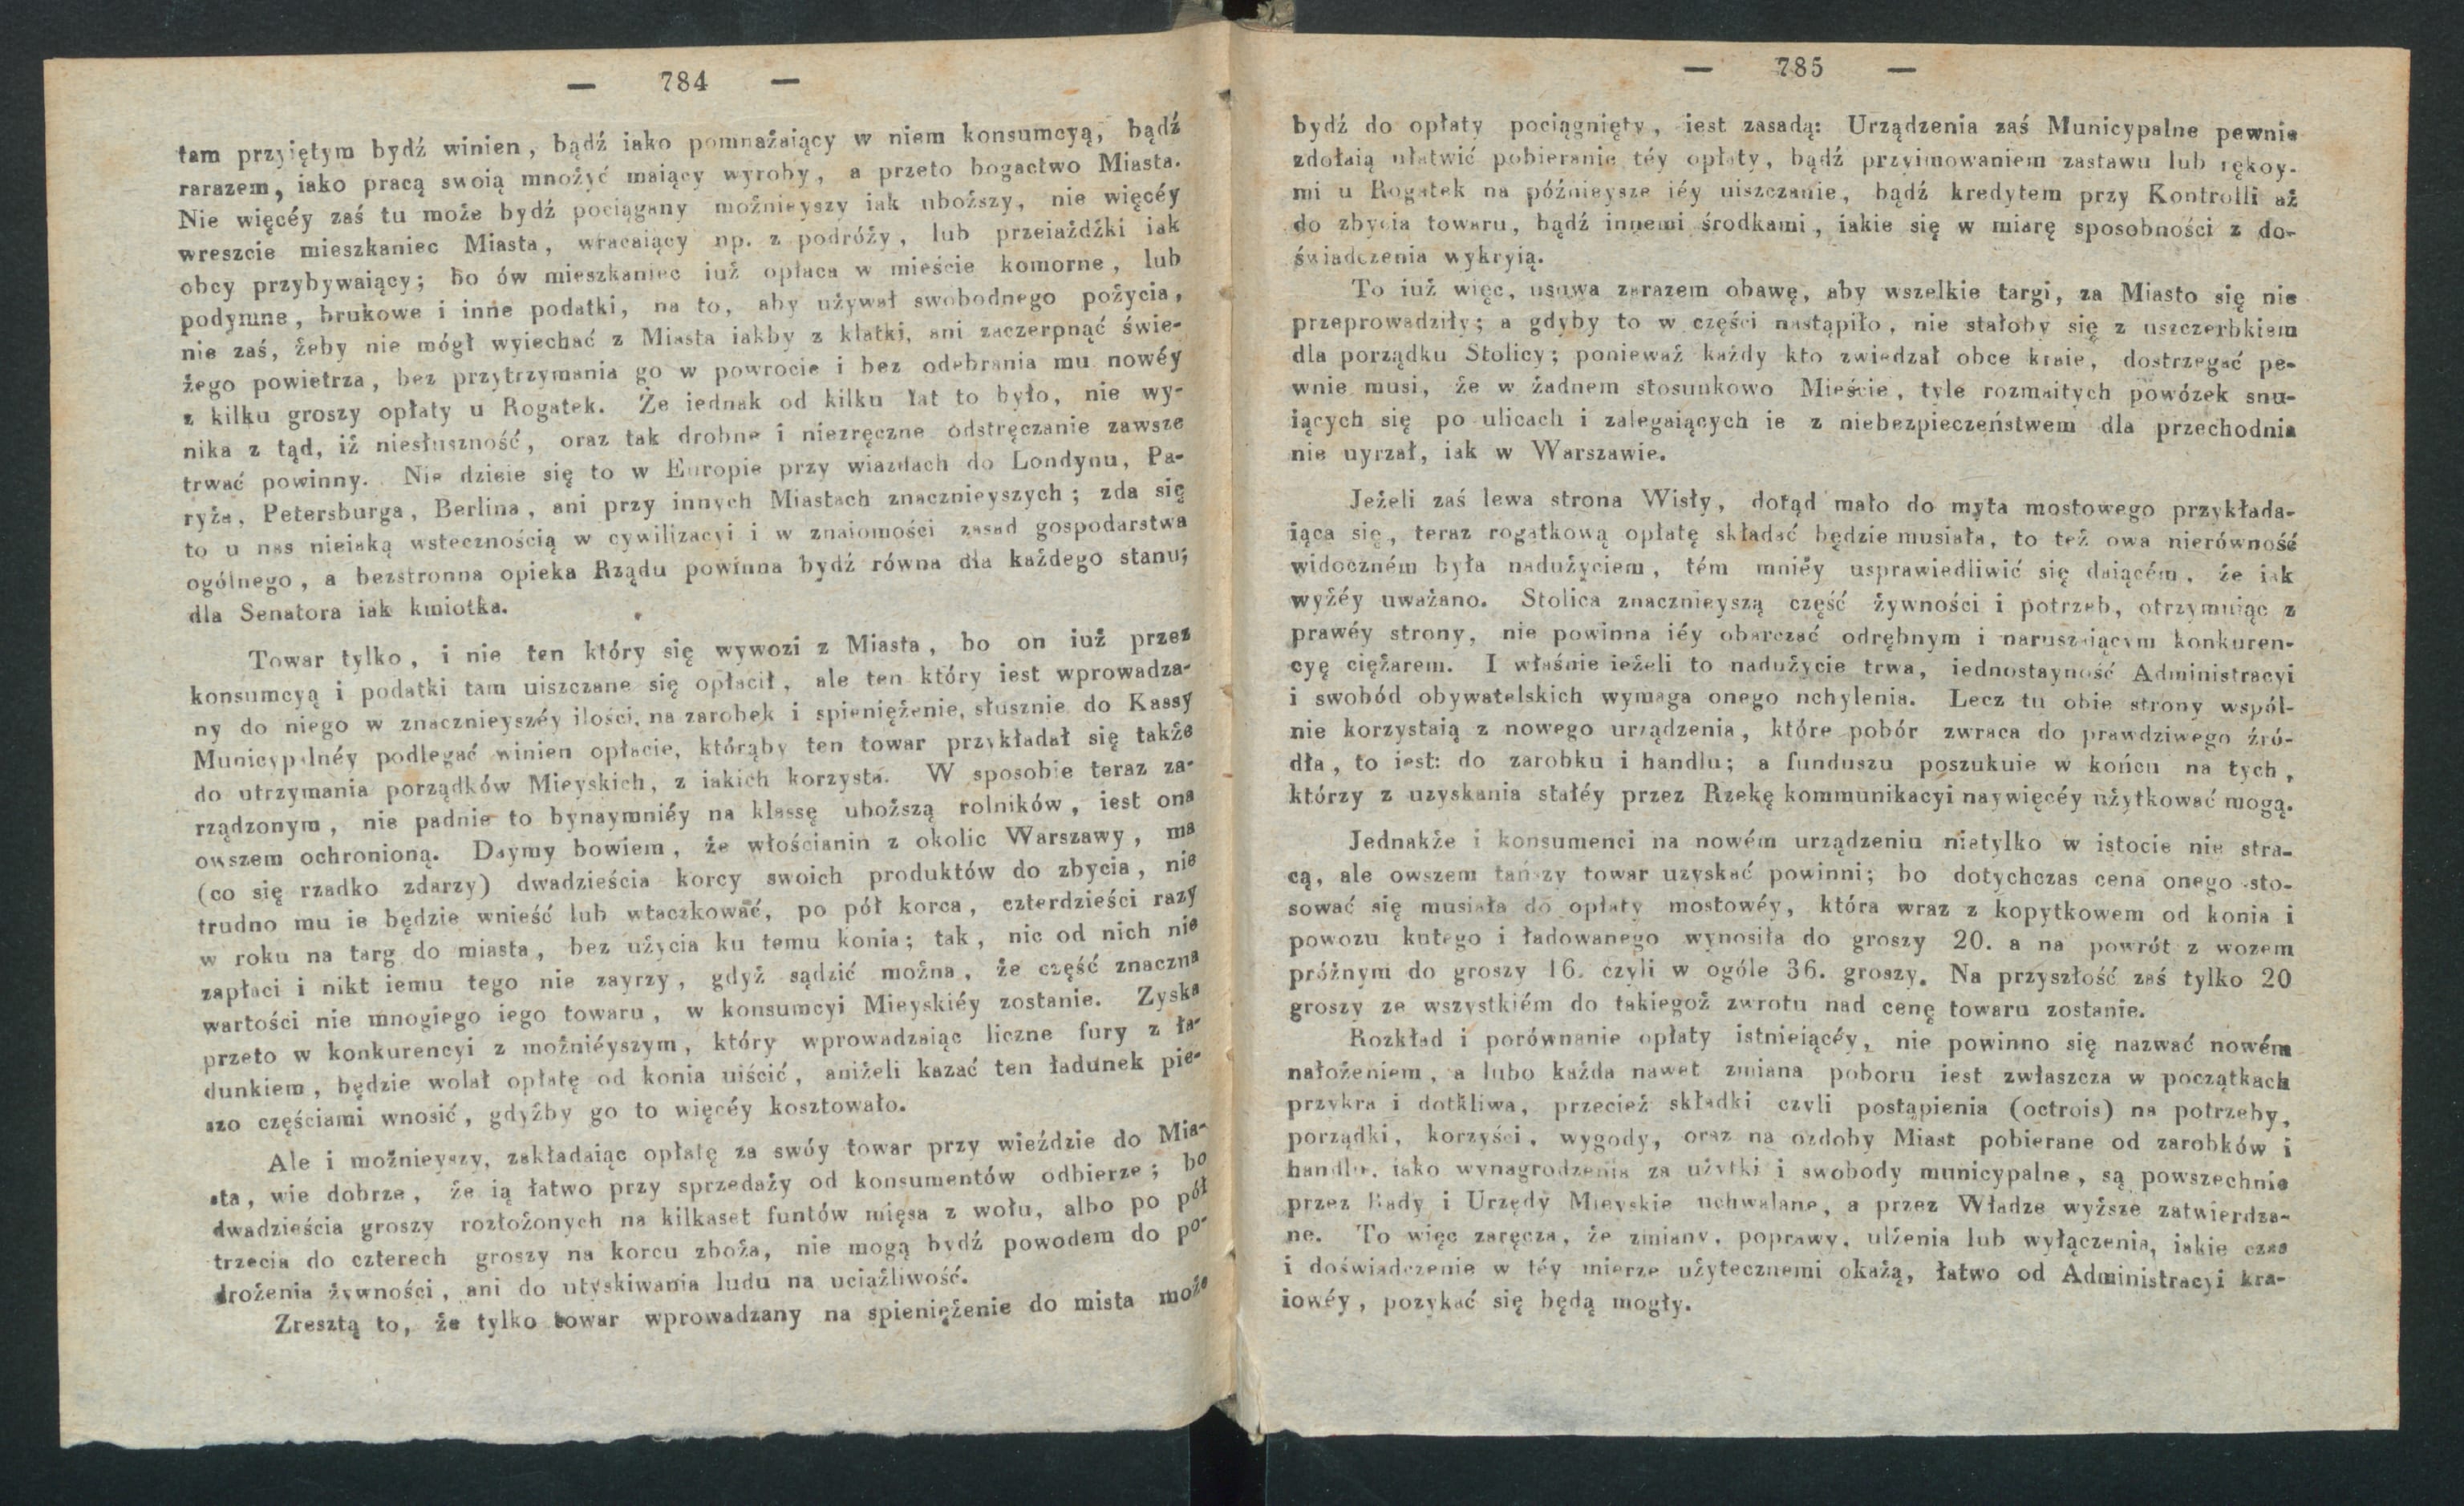 — 784 —
tam przyiętym bydź winien, bądź iako pomnażaiący w niem konsumcyą, bądź
rarazem, iako pracą swoią mnożyć maiący wyroby, a przeto bogactwo Miasta.
Nie więcéy zaś tu może bydź pociągany możnieyszy iak uboższy, nie więcéy
wreszcie mieszkaniec Miasta, wracaiący np. z podróży, lub przeiażdżki iak
obcy przybywaiący; bo ów mieszkaniec iuż opłaca w mieście komorne, lub
podymne, brukowe i inne podatki, na to, aby używał swobodnego pożycia,
nie zaś, żeby nie mógł wyiechać z Miasta iakby z klatki, ani zaczerpnąć świe-
żego powietrza, bez przytrzymania go w powrocie i bez odebrania mu nowéy
z kilku groszy opłaty u Rogatek. Że iednak od kilku lat to było, nie wy-
nika z tąd, iż niesłuszność, oraz tak drobne i niezręczne odstręczanie zawsze
trwać powinny. Nie dzieie się to w Europie przy wiazdach do Londynu, Pa-
ryża, Petersburga, Berlina, ani przy innych Miastach znacznieyszych; zda się
to u nas nieiaką wstecznością w cywilizacyi i w znaiomości zasad gospodarstwa
ogólnego, a bezstronna opieka Rządu powinna bydź równa dla każdego stanu;
dla Senatora iak kmiotka.
Towar tylko, i nie ten który się wywozi z Miasta, bo on iuż przez
konsumcyą i podatki tam uiszczane się opłacił, ale ten który iest wprowadza-
ny do niego w znacznieyszéy ilości, na zarobek i spieniężenie, słusznie do Kassy
Municypalnéy podlegać winien opłacie, którąby ten towar przykładał się także
do utrzymania porządków Mieyskich, z iakich korzysta. W sposobie teraz za-
rządzonym, nie padnie to bynaymniéy na klassę uboższą rolników, iest ona
owszem ochronioną. Daymy bowiem, że włościanin z okolic Warszawy, ma
(co się rzadko zdarzy) dwadzieścia korcy swoich produktów do zbycia, nie
trudno mu ie będzie wnieść lub wtaczkować, po pół korca, czterdzieści razy
w roku na targ do miasta, bez użycia ku temu konia; tak, nic od nich nie
zapłaci i nikt iemu tego nie zayrzy, gdyż sądzić można, że część znaczna
wartości nie mnogiego iego towaru, w konsumcyi Mieyskiéy zostanie. Zyska
przeto w konkurencyi z możniéyszym, który wprowadzaiąc liczne fury z ła-
dunkiem, będzie wolał opłatę od konia uiścić, aniżeli kazać ten ładunek pie-
szo częściami wnosić, gdyżby go to więcéy kosztowało.
Ale i możnieyszy, zakładaiąc opłatę za swóy towar przy wieździe do Mia-
sta, wie dobrze, że ią łatwo przy sprzedaży od konsumentów odbierze; bo
dwadzieścia groszy rozłożonych na kilkaset funtów mięsa z wołu, albo po pół
trzecia do czterech groszy na korcu zboża, nie mogą bydź powodem do po-
drożenia żywności, ani do utyskiwania ludu na uciążliwość.
Zresztą to, że tylko towar wprowadzany na spieniężenie do mista może
— 785 —
bydź do opłaty pociągnięty, iest zasadą: Urządzenia zaś Municypalne pewnie
zdołaią ułatwić pobieranie téy opłaty, bądź przyimowaniem zastawu lub rękoy-
mi u Rogatek na późnieysze iéy uiszczanie, bądź kredytem przy Kontrolli aż
do zbycia towaru, bądź innemi środkami, iakie się w miarę sposobności z do-
świadczenia wykryią.
To iuż więc, usuwa zarazem obawę, aby wszelkie targi, za Miasto się nie
przeprowadziły; a gdyby to w części nastąpiło, nie stałoby się z uszczerbkiem
dla porządku Stolicy; ponieważ każdy kto zwiedzał obce kraie, dostrzegać pe-
wnie musi, że w żadnem stosunkowo Mieście, tyle rozmaitych powózek snu-
iących się po ulicach i zalegaiących ie z niebezpieczeństwem dla przechodnia
nie uyrzał, iak w Warszawie.
Jeżeli zaś lewa strona Wisły, dotąd mało do myta mostowego przykłada-
iąca się, teraz rogatkową opłatę składać będzie musiała, to też owa nierówność
widoczném była nadużyciem, tém mniéy usprawiedliwić się daiącém, że iak
wyżéy uważano. Stolica znacznieyszą część żywności i potrzeb, otrzymuiąc z
prawéy strony, nie powinna iéy obarczać odrębnym i naruszaiącym konkuren-
cyę ciężarem. I właśnie ieżeli to nadużycie trwa, iednostayność Administracyi
i swobód obywatelskich wymaga onego uchylenia. Lecz tu obie strony wspól-
nie korzystaią z nowego urządzenia, które pobór zwraca do prawdziwego źró-
dła, to iest: do zarobku i handlu; a funduszu poszukuie w końcu na tych,
którzy z uzyskania stałéy przez Rzekę kommunikacyi naywięcéy użytkować mogą.
Jednakże i konsumenci na nowém urządzeniu nietylko w istocie nie stra-
cą, ale owszem tańszy towar uzyskać powinni; bo dotychczas cena onego sto-
sować się musiała do opłaty mostowéy, która wraz z kopytkowem od konia i
powozu kutego i ładowanego wynosiła do groszy 20. a na powrót z wozem
próżnym do groszy 16. czyli w ogóle 36. groszy. Na przyszłość zaś tylko 20
groszy ze wszystkiém do takiegoż zwrotu nad cenę towaru zostanie.
Rozkład i porównanie opłaty istnieiącéy, nie powinno się nazwać nowém
nałożeniem, a lubo każda nawet zmiana poboru iest zwłaszcza w początkach
przykra i dotkliwa, przecież składki czyli postąpienia (octrois) na potrzeby,
porządki, korzyści, wygody, oraz na ozdoby Miast pobierane od zarobków i
handlu, iako wynagrodzenia za użytki i swobody municypalne, są powszechnie
przez Rady i Urzędy Mieyskie uchwalane, a przez Władze wyższe zatwierdza-
ne. To więc zaręcza, że zmiany, poprawy, ulżenia lub wyłączenia, iakie czas
i doświadczenie w téy mierze użytecznemi okażą, łatwo od Administracyi kra-
iowéy, pozykać się będą mogły.